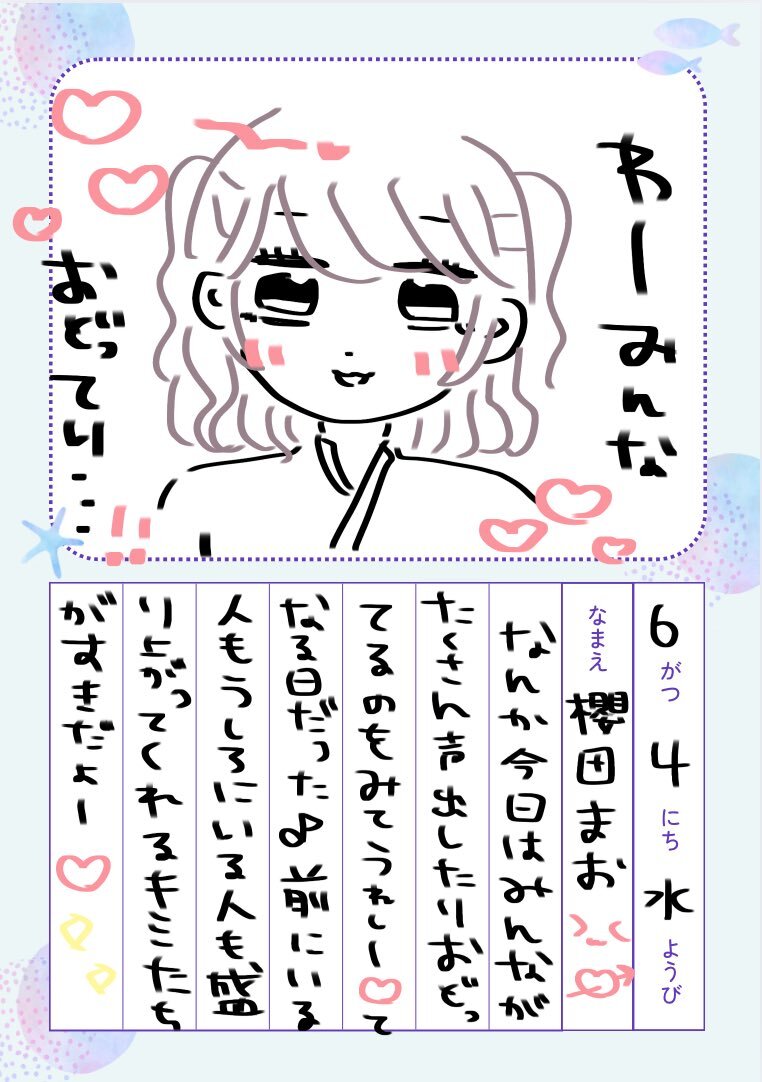 わーみんな
おどってり...!!
6がつ4にち水ようび
なまえ 櫻田まお
なんか今日はみんなが
たくさん声出したりおどっ
てるのをみてうれしー♡て
なる日だった♪前にいる
人もうしろにいる人も、盛
り上がってくれるキミたち
がすきだよー♡